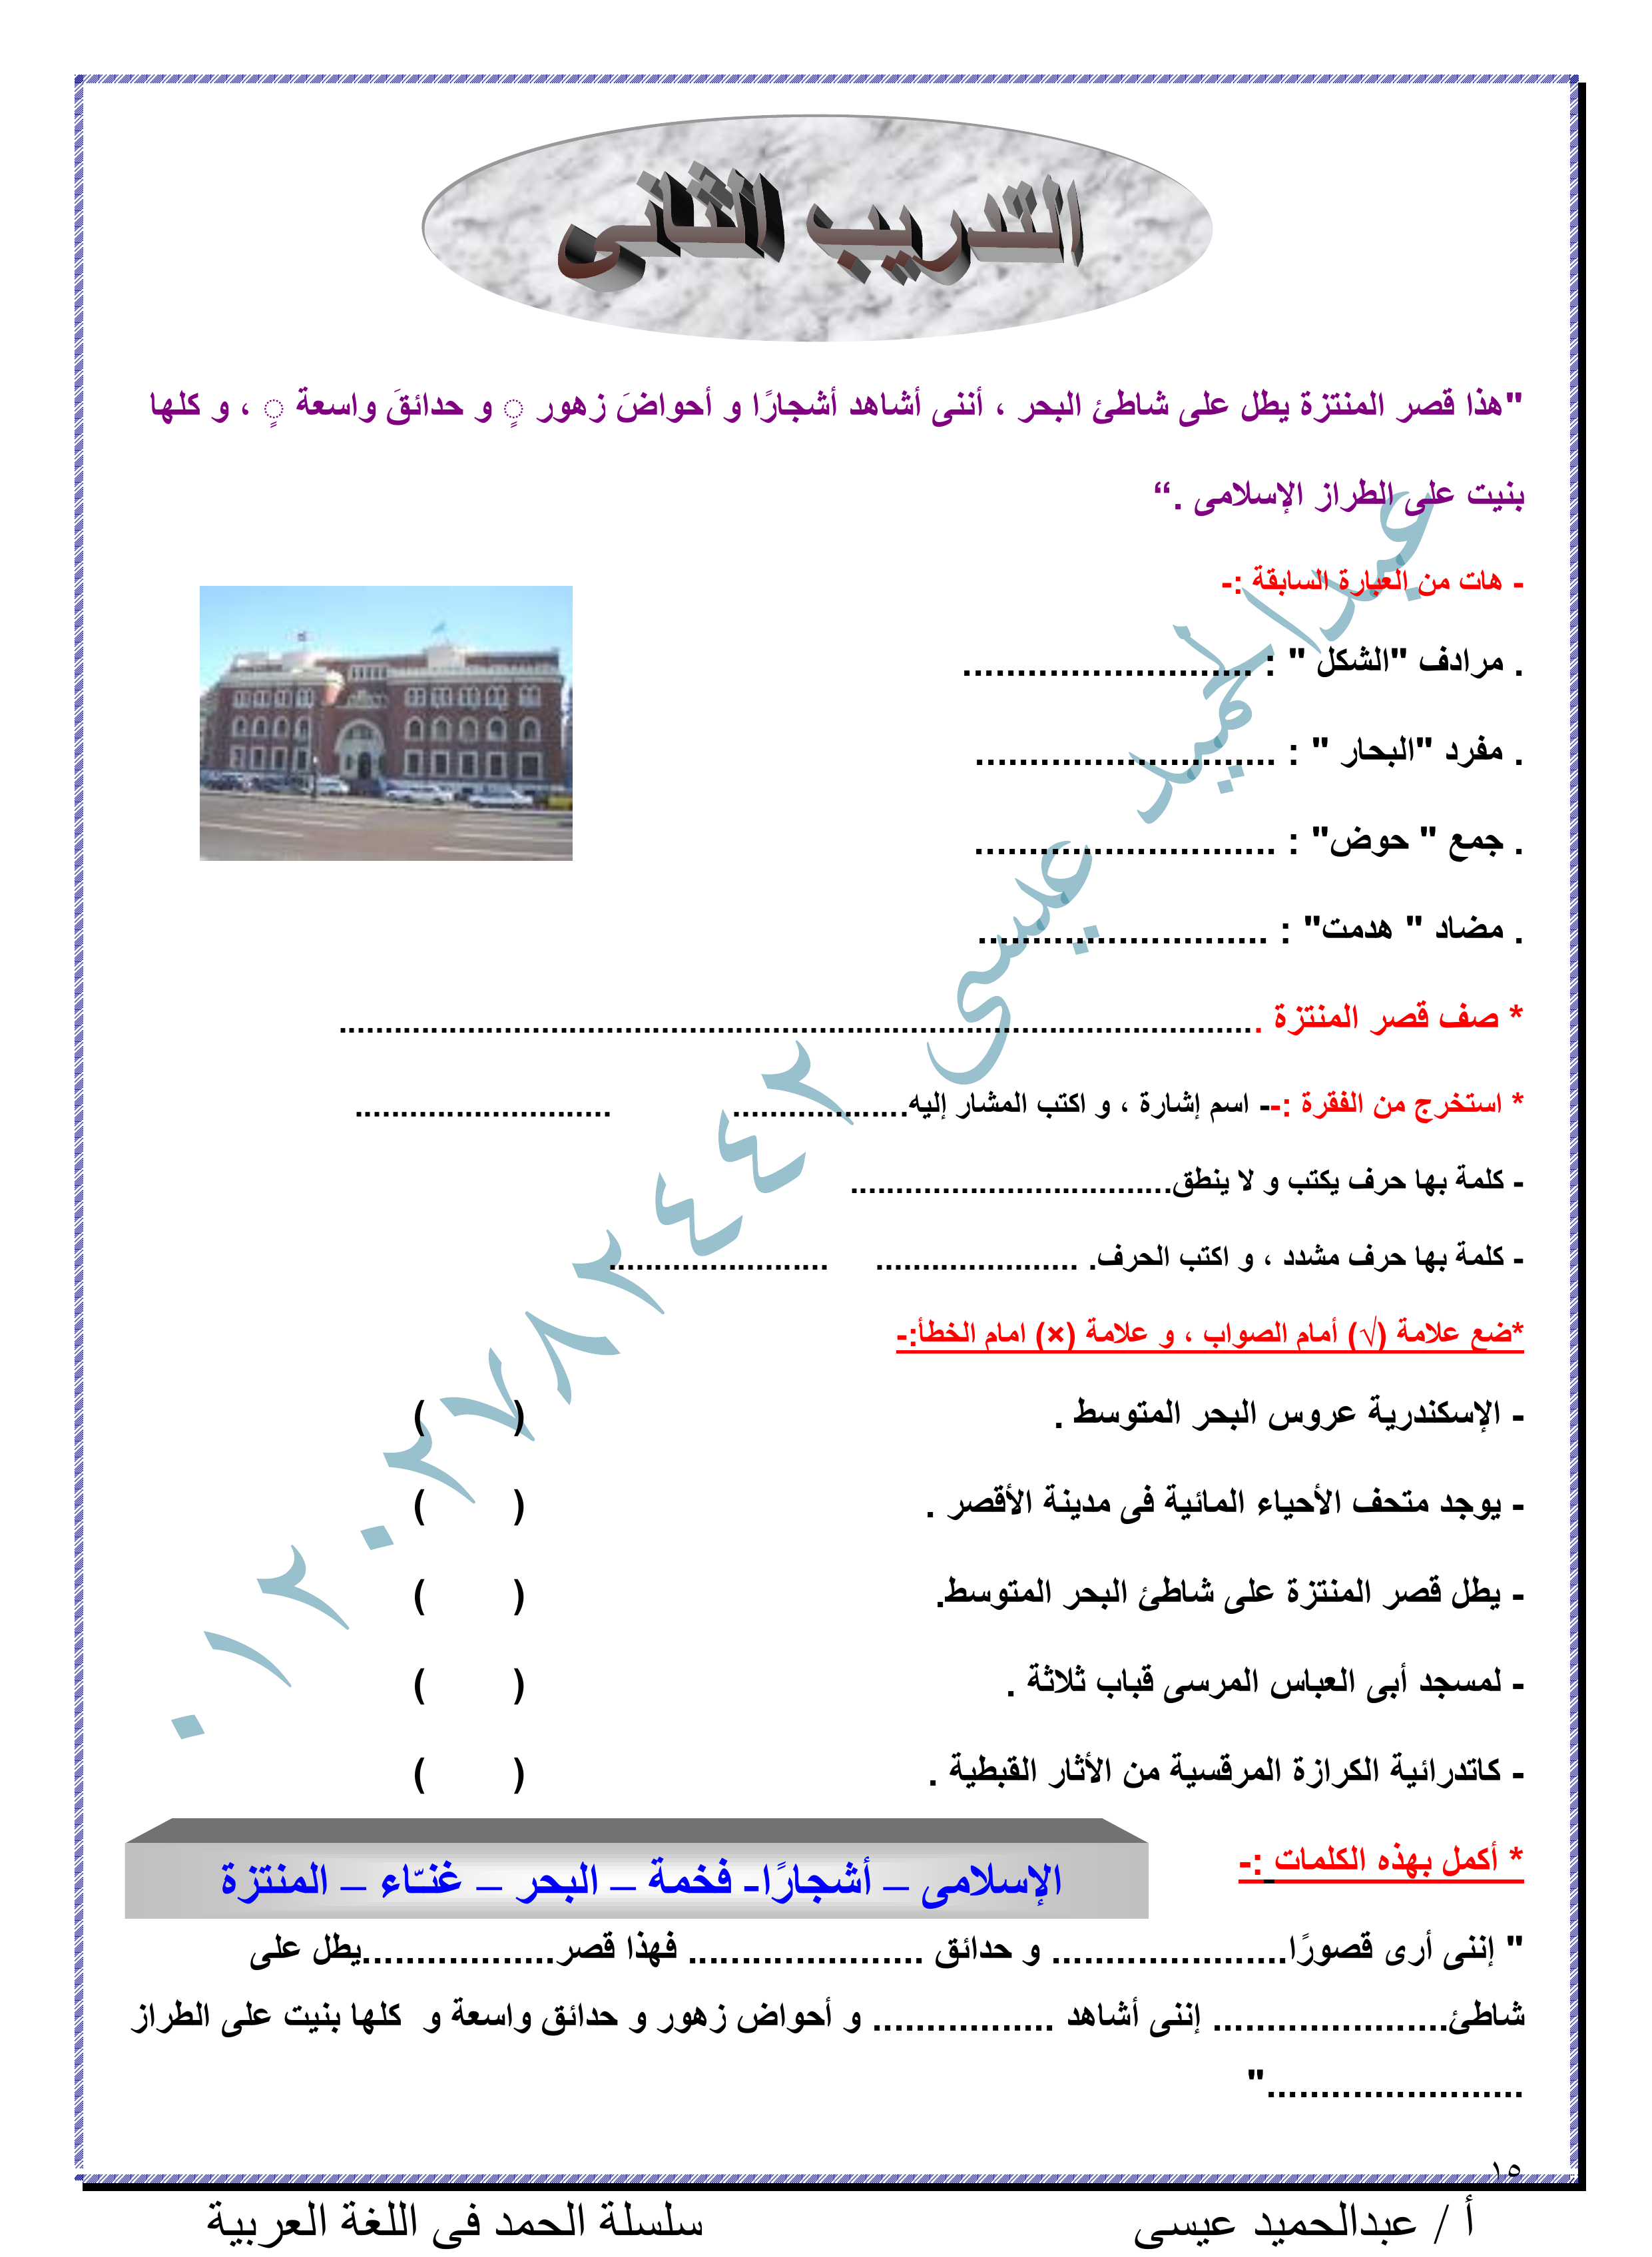 التدريب الثانى
"هذا قصر المنتزة يطل على شاطئ البحر ، أننى أشاهد أشجارًا و أحواضَ زهور ٍ و حدائقَ واسعة ٍ ، و كلها
بنيت على الطراز الإسلامى .“
- هات من العبارة السابقة :-
. مرادف "الشكل " : ...........................
. مفرد "البحار " : ............................
. جمع " حوض" : ............................
. مضاد " هدمت" : ...........................
* صف قصر المنتزة .....................................................................................................
* استخرج من الفقرة :-- اسم إشارة ، و اكتب المشار إليه................... ............................
- كلمة بها حرف يكتب و لا ينطق...................................
- كلمة بها حرف مشدد ، و اكتب الحرف. ...................... ........................
*ضع علامة (√) أمام الصواب ، و علامة (×) امام الخطأ:-
- الإسكندرية عروس البحر المتوسط . ( )
- يوجد متحف الأحياء المائية فى مدينة الأقصر . ( )
- يطل قصر المنتزة على شاطئ البحر المتوسط. ( )
- لمسجد أبى العباس المرسى قباب ثلاثة . ( )
- كاتدرائية الكرازة المرقسية من الأثار القبطية . ( )
* أكمل بهذه الكلمات :-
الإسلامى – أشجارًا- فخمة – البحر – غنـّاء – المنتزة
" إننى أرى قصورًا...................... و حدائق ...................... فهذا قصر..................يطل على
شاطئ...................... إننى أشاهد ................. و أحواض زهور و حدائق واسعة و كلها بنيت على الطراز
........................"
١٥
أ / عبدالحميد عيسى سلسلة الحمد فى اللغة العربية
عبدالحميد عيسى ٠١٢٠٢٧٨٢٤٤٢